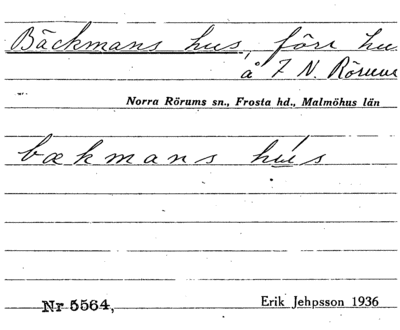 Bäckmans hus, förr hu
å 7 N. Rörum
Norra Rörums sn., Frosta hd., Malmöhus län
bækmans hús
Nr 5564,
Erik Jehpsson 1936